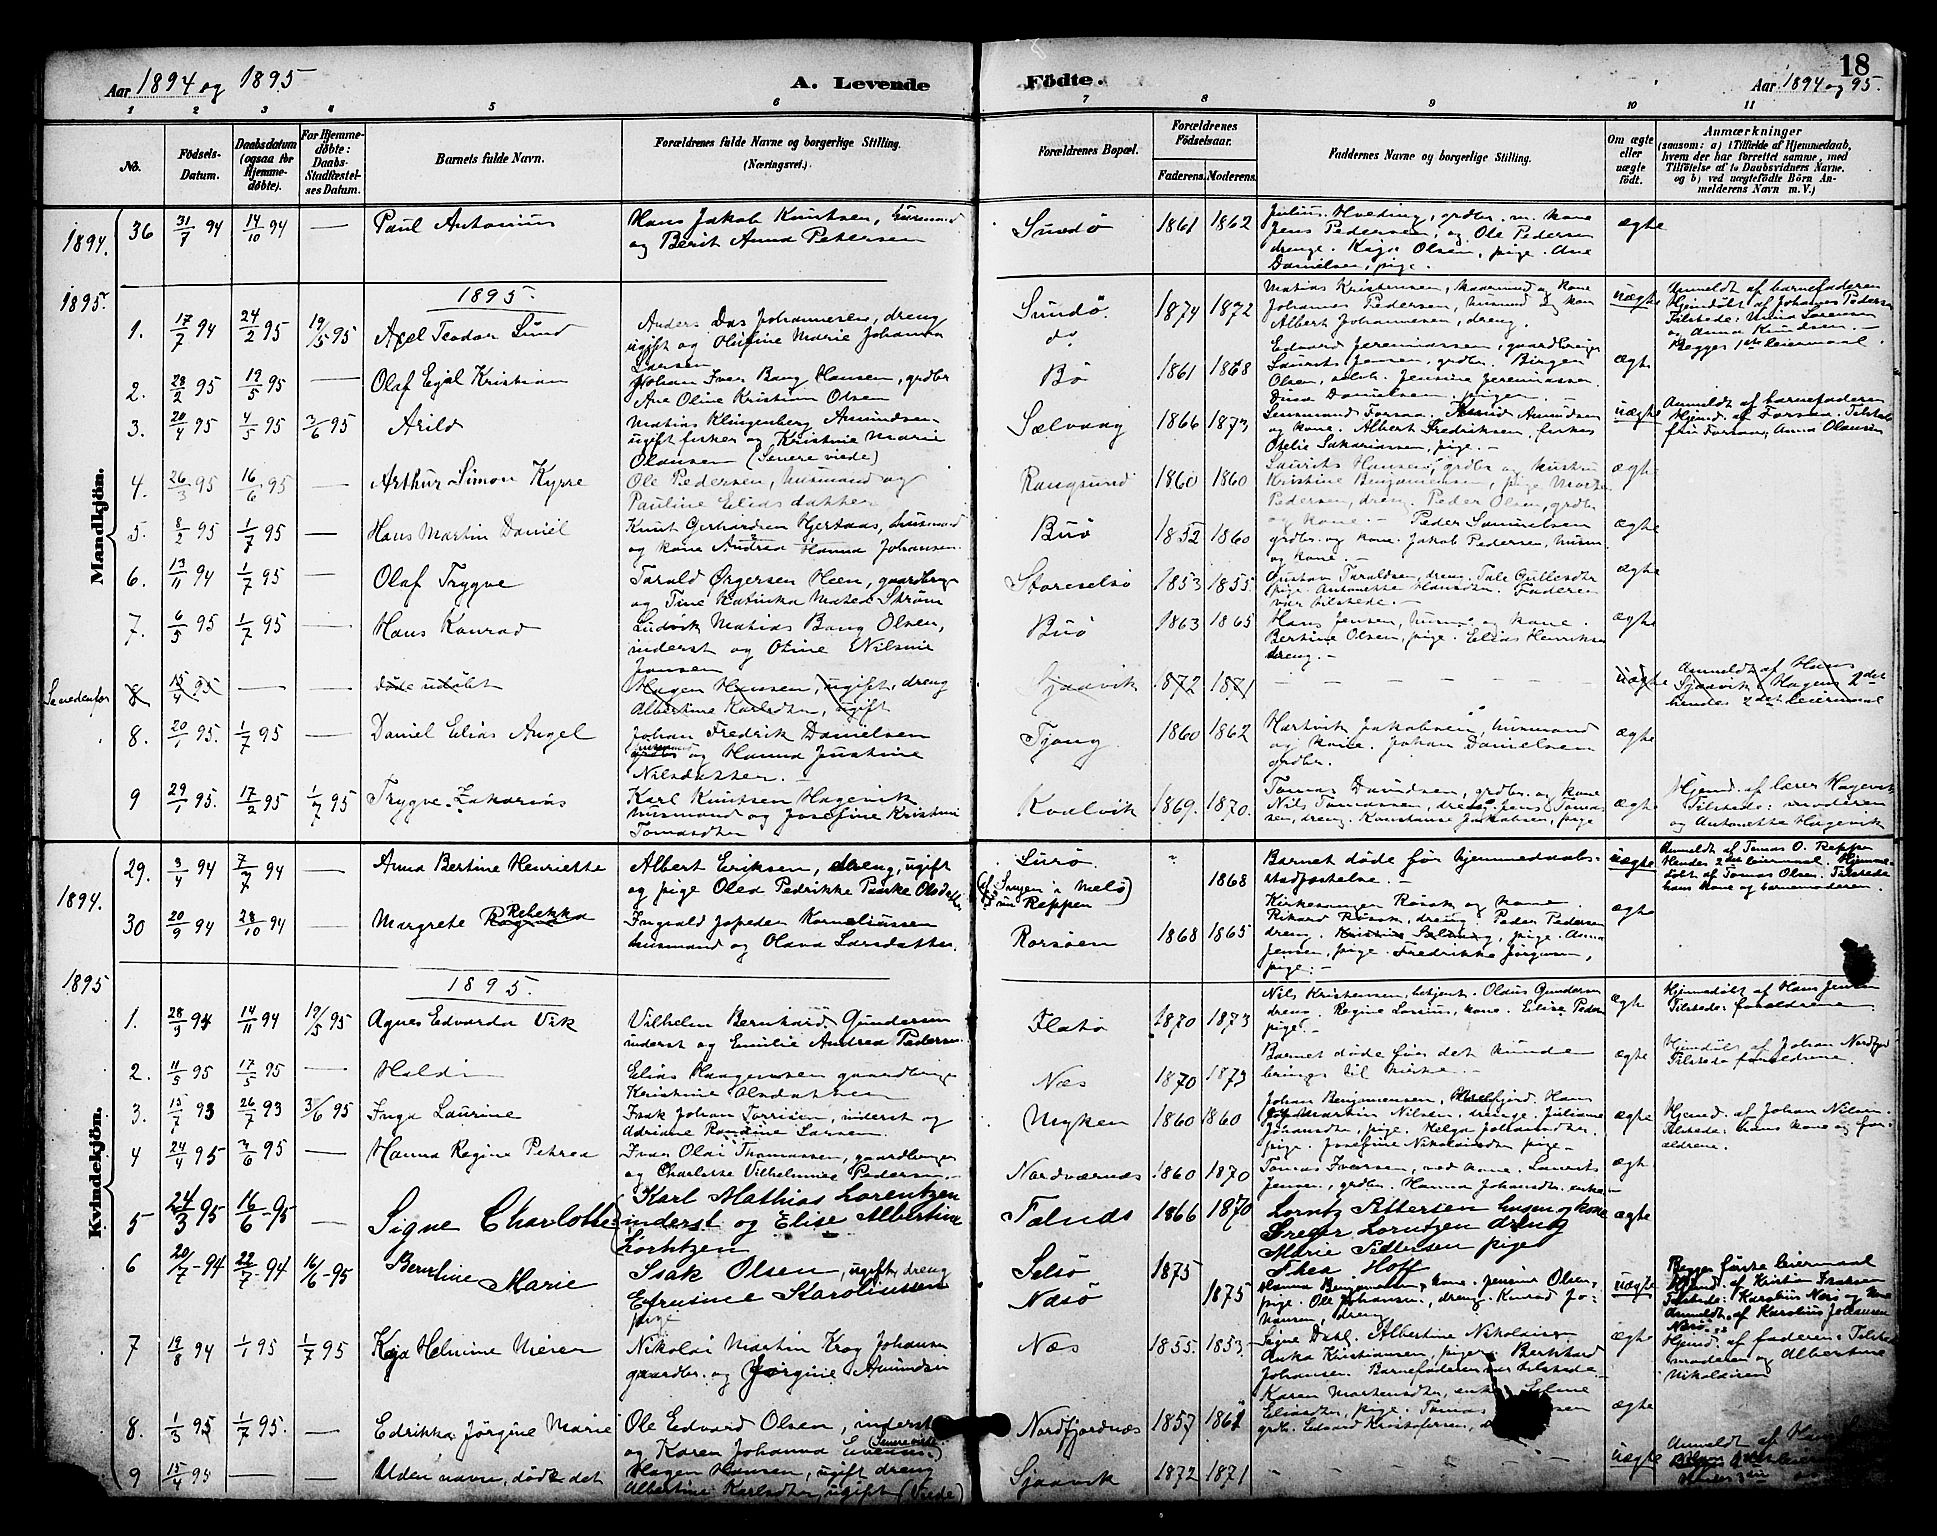 18
Aar 1894 og 1895
A. Levende
Födte.
Aar 1894 og 95.
1 2 3 4 5 6 7 8 9 10 11
No.
Födsels-Datum.
Daabsdatum (ogsaa for Hjemme-døbte).
For Hjemme-døbte: Daabs-Stadfæstel-ses Datum.
Barnets fulde Navn.
Forældrenes fulde Navne og borgerlige Stilling. (Næringsvei.)
Forældrenes Bopæl.
Forældrenes Födselsaar.
Faderens. Moderens.
Faddernes Navne og borgerlige Stilling.
Om ægte eller uægte födt.
Anmærkninger
(saasom: a) i Tilfælde af Hjemmedaab,
hvem der har forrettet samme, med
Tilföielse af to Daabsvidners Navne,
og b) ved uægtefödte Börn An-
melderens Navn m. V.)
Mandkjön.
1894. 36 31/7 94 14/10 94 — Paul Antonius
Hans Jakob Knutsen, husmand
og Berit Anna Petersen
Sundö 1861 1862
Julius Hveding, grdbr. m. kone
Jens Pedersen, og Ole Pedersen
drenge. Kaja Olsen, pige. Ane
Danielsen, pige.
ægte
1895. 1895.
1. 17/7 94 24/2 95 19/5 95 Axel Teodor Sund
Anders Das Johannesen, dreng
ugift og Olufine Marie Johanna
Larsen
Sundö. do 1874 1872
Matias Kristensen, kaarmand og kone
Johannes Pedersen, husmand og kone
Albert Johannesen, dreng.
uægte
Anmeldt af barnefaderen
Hjemdöbt af Johannes Pedersen
Tilstede: Maria Sörensen
og Anna Knudsen.—
Begges 1ste leiermaal.
2. 28/2 95 19/5 95 — Olaf Ejal Kristian
Johan Iver Bang Hansen, grdbr
Ane Oline Kristine Olsen
Bö 1861 1868
Edvard Jeremiassen, gaardbruger
Laurits Jensen, grdbr. Birger
Olsen, Jensine Jeremiassen
Dina Danielsen, piger.
ægte
3. 20/4 95 4/5 95 3/6 95 Arild
Matias Klingenberg Amundsen
ugift fisker og Kristine Marie
Olausen (Senere viede)
Selvaag 1866 1873
Lensmand Forsaa. Knud Amundsen
og kone. Albert Fredriksen, fisker
Otelie Sakariassen, pige.
uægte
Anmeldt af barnefaderen
Hjemd. af Forsaa. Tilstede
fru Forsaa, Anna Olausen
4. 26/3 95 16/6 95 — Arthur Simon Kyrre
Ole Pedersen, husmand og
Pauline Eliasdatter
Rangsund 1860 1860
Laurits Hansen, grdbr og hustru
Kristine Benjaminsen, pige
Pedersen, dreng. Peder Olsen, grdbr
og kone.—
ægte
5. 8/2 95 1/7 95 — Hans Martin Daniel
Knut Gerhardsen Hjertaas, husmand
og kone Andrea Hanna Johansen.
Buö 1852 1860
Peder Samuelsen
grdbr. og kone. Jakob Pedersen, husm.
og kone.—
ægte
6. 13/11 94 1/7 95 — Olaf Trygve
Tarald Örgersen Heen, gaardbruger
og Tine Katinka Matea Ström
Storeselsö 1853 1855.
Gustav Taraldsen, dreng. Tale Gullesdtr
pige. Antonette Hansdtr. Faderen
var tilstede.—
ægte
7. 6/5 95 1/7 95 — Hans Konrad
Ludvik Matias Bang Olsen,
inderst og Otine Nilsine
Jensen
Buö 1863 1865
Hans Jensen, husm. og kone.
Bertine Olsen, pige. Elias Henriksen
dreng.—
ægte
8 15/4 95 — — döde udöbt
Hagen Hansen, ugift, dreng
Albertine Karlsdtr, ugift
Sjaavik 1872 1871
uægte
Anmeldt af Hans
Sjaavik. Hagens 2det
hendes 2det leiermaal
8. 20/1 95. 1/7 95 — Daniel Elias Angel
Johan Fredrik Danielsen
husmand og Hanna Justine
Nilsdatter.—
Tjong 1860 1862
Hartvik Jakobsen, husmand
og kone. Johan Danielsen
grdbr.
ægte
9 29/1 95. 17/2 95 1/7 95 Trygve Zakarias
Karl Knutsen Hagevik
husmand og Josefine Kristine
Tomasdtr
Kvalvik 1869. 1870.
Tomas Davidsen, grdbr. og kone
Nils Tomassen, dreng. Jens Tomas-
sen, dreng. Konstanse Jakobsen, pige
ægte
Hjemd. af lærer Hagevik
Tilstede: moderen
og Antonette Hagevik
Kvindekjön.
1894. 29. 3/4 94 7/7 94 — Anna Bertine Henriette
Albert Eriksen, dreng, ugift
og pige Olea Pedrikke Paaske Olsdatter
Lurö.
Reppen 1868
Barnet döde för hjemmedaabs-
stadfæstelse.—
uægte
Anmeldt af Tomas O. Reppen
Hendes 2det leiermaal. Hjemme-
döbt af Tomas Olsen. Tilstede
hans kone og barnemoderen.
30 20/9 94 28/10 94 — Margrete Rebekka
Ingvald Jepsen Korneliussen
husmand og Olava Larsdatter.
Rorsöen 1868 1865
Kirkesanger Rörek og kone.
Rikard Rörek, dreng. Peder Pedersen
dreng. Kristine Selvaag, pige. Anna
Jensen, pige. Fredrikke Jörgensen,
pige.—
ægte
1895 1895.
1. 28/9 94 14/11 94 19/5 95 Agnes Edvarda Vik
Vilhelm Bernhard Gundersen
inderst og Emilie Andrea Pedersen.
Flatö 1870 1873
Nils Kristensen, betjent. Olaus Gundersen
dreng. Regine Larsen, kone. Elise Peders
pige.—
ægte
Hjemmedöbt af Hans Jensen
Tilstede: forældrene
2. 11/5 95 17/5 95 — Haldis
Elias Haagensen gaardbruger
Kristine Olsdatter
Næs 1870 1873
Barnet döde för det kunde
bringes til kirke.—
ægte
Hjemdöbt af Johan Nordfjord
Tilstede forældrene
3. 15/7 93 26/7 93 3/6 95 Inga Laurine
Isak Johan Torrisen, inderst og
Adriane Rondine Larsen.
Myken 1860 1860
Johan Benjaminsen, Husfjord. Hans
og Martin Nilsen, drenge. Juliane
Johansdtr, pige. Helga Johansdtr.
pige. Josefine Nikolaisdtr pige.
ægte
Hjemd. af Johan Nilsen.
Tilstede: hans kone og for-
ældrene.
4 24/4 95 3/6 95 — Hanna Regine Petrea
Ivar Olai Thomassen, gaardbruger
og Charlotte Vilhelmine Pedersen.
Nordværnæs 1860 1870
Tomas Iversen, ved kone. Laurits
Jensen, grdbr. Hanna Johansdtr. enke.—
ægte
5 24/3 95 16/6-95 — Signe Charlotte
Karl Mathias Lorentzen
inderst og Elise Albertine
Lorntzen
Telnes 1866 1870
Lorntz Pettersen husm og kone
Greger Lorntzen dreng
Marie Pettersen pige
ægte
6 20/7-94 22/7-94 16/6-95 Berntine Marie
Isak Olsen, ugift, dreng
Efrusine Karoliussen
pige
Selsö Næsö 1875 1875
Thea Hoff
Hanna Benjaminsen, kone. Jensine Olsen,
pige. Ole Johansen, dreng. Konrad Jo-
hansen, dreng
uægte
Begges förste leiermaal
Hjemd. af Kristian Isaksen
Tilstede: Karolius Næs og kone
Anmeldt af Karolius Johansen
Næsö.
7 19/8 94 1/1 95 1/7 95 Kaja Helmine Meier
Nikolai Martin Krog Johansen
gaardbr. og Jörgine Amundsen
Næs 1855. 1853.
Signe Dahl. Albertine Nikolaisen
Anka Kristiansen, piger. Bernhard
Johansen. Barnefaderen var tilstede
ægte
Hjemd. af faderen. Tilstede
moderen og Albertine
Nikolaisen
8. 1/3 95 1/7 95. — Edrikka Jörgine Marie
Ole Edvard Olsen, inderst
og Karen Johanna Evensen
(Senere viede.)
Nordfjordnæs 1857 1861
Karen Mortensdtr, enke. Seline
Eliasdtr, pige. Tomas
grdbr. Edvard Kristofersen,
ægte
9 15/4 95 — — Uden navn, död det
Hagen Hansen, ugift dreng
Albertine Karlsdtr, ugift (Viede)
Sjaavik 1872 1871
uægte
Anmeldt af Hans